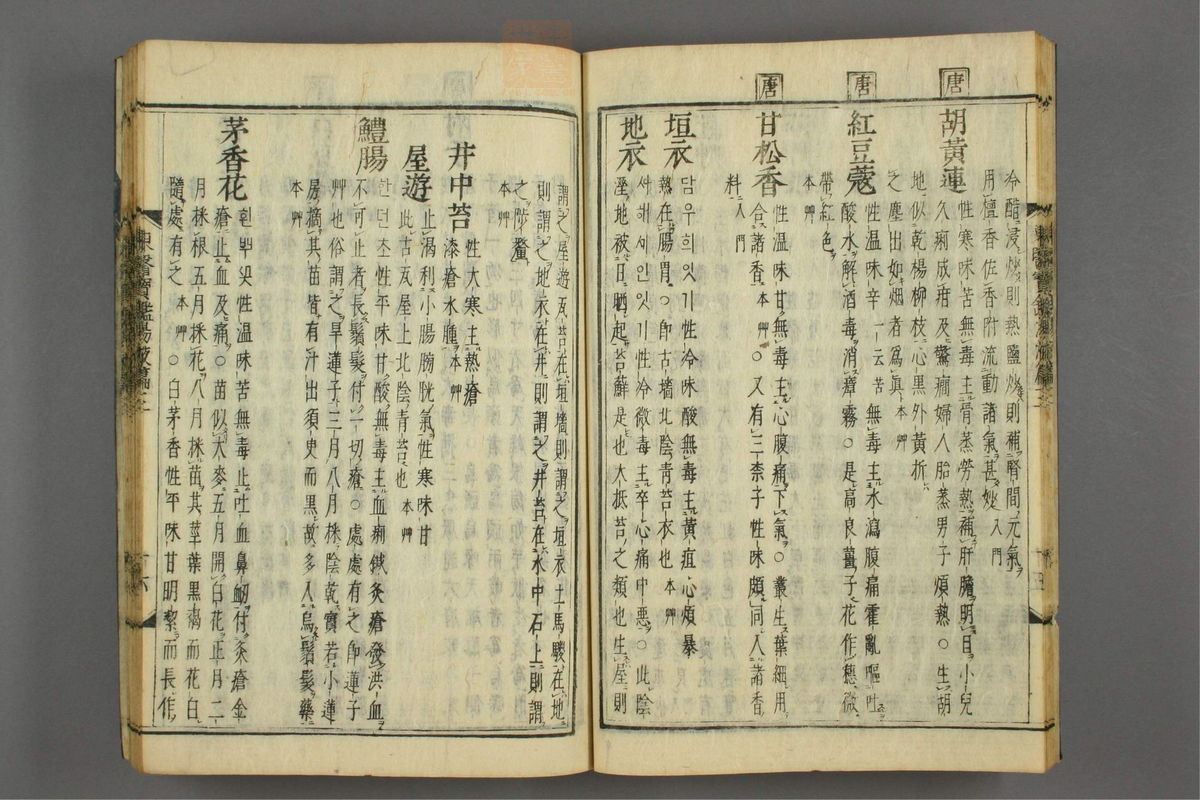 冷醋浸炒則熱鹽炒則補腎間元氣
用檀香佐香附流動諸氣甚妙入門
唐
胡黃連 性寒味苦無毒主骨蒸勞熱補肝膽明目小兒
久痢成疳及驚癎婦人胎蒸男子煩熱○生胡
地似乾楊柳枝心黑外黃折
之塵出如烟者爲眞本艸
唐
紅豆蔲 性溫味辛一云苦無毒主水瀉腹痛霍亂嘔吐
酸水解酒毒消瘴霧○是高良薑子花作穗微
帶紅色
本艸
唐
甘松香 性溫味甘無毒主心腹痛下氣○叢生葉細用
合諸香本艸○又有三柰子性味頗同入諸香
料入門
垣衣 담우희잇기性冷味酸無毒主黃疸心煩暴
熱在腸胃○卽古墻北陰靑苔衣也本艸
地衣 性冷微毒主卒心痛中惡○此陰
濕地被日晒起苔蘚是也大抵苔之類也生屋則
謂之屋遊瓦苔在垣墻則謂之垣衣土馬騣在地
則謂之地衣在井則謂之井苔在水中石上則謂
之陟釐
本艸
井中苔 性大寒主熱瘡
漆瘡水腫本艸
屋遊 止渴利小腸膀胱氣性寒味甘
此古瓦屋上北陰靑苔也本艸
鱧腸 한련초性平味甘酸無毒主血痢鍼灸瘡發洪血
不可止者長鬚髮付一切瘡○處處有之卽蓮子
艸也俗謂之旱蓮子三月八月採陰乾實若小蓮
房摘其苗皆有汁出須臾而黑故多入烏鬚髮藥
本艸
茅香花 흰性溫味苦無毒止吐血鼻衄付灸瘡金
瘡止血及痛○苗似大麥五月開白花正月二
月採根五月採花八月採苗其莖葉黑褐而花白
隨處有之本艸○白茅香性平味甘明潔而長作